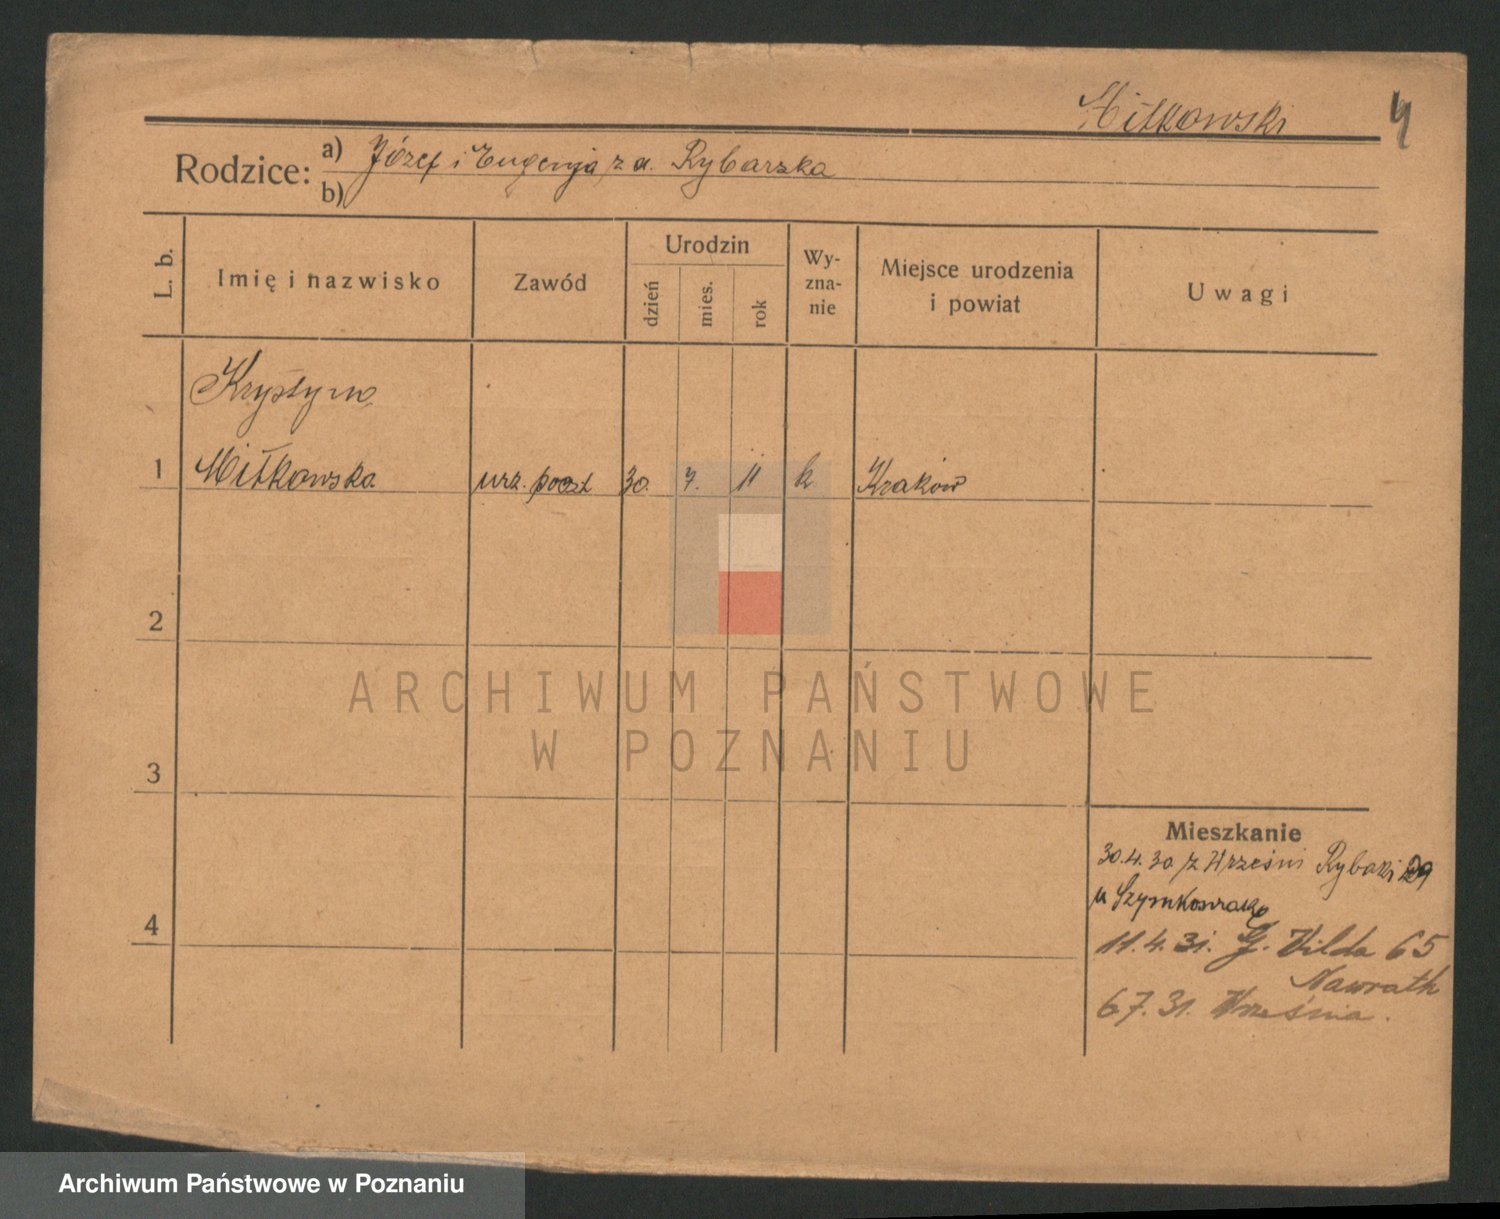 Miłkowski 4
Rodzice: a) Józef i Eugenja z d. Rybarska
b)
L. b.
Imię i nazwisko
Zawód
Urodzin
dzień
mies.
rok
Wy-
zna-
nie
Miejsce urodzenia
i powiat
Uwagi
Krystyna
1 Miłkowska urz. poczt 30. 7. 11 k. Kraków
2
ARCHIWUM PAŃSTWOWE
W POZNANIU
3
Mieszkanie
30.4.30 z Wrześni Rybaki 29
u Szymkowiak
4
11.4.31. G. Wilda 65
Nawrath
6 7.31. Września.
Archiwum Państwowe w Poznaniu